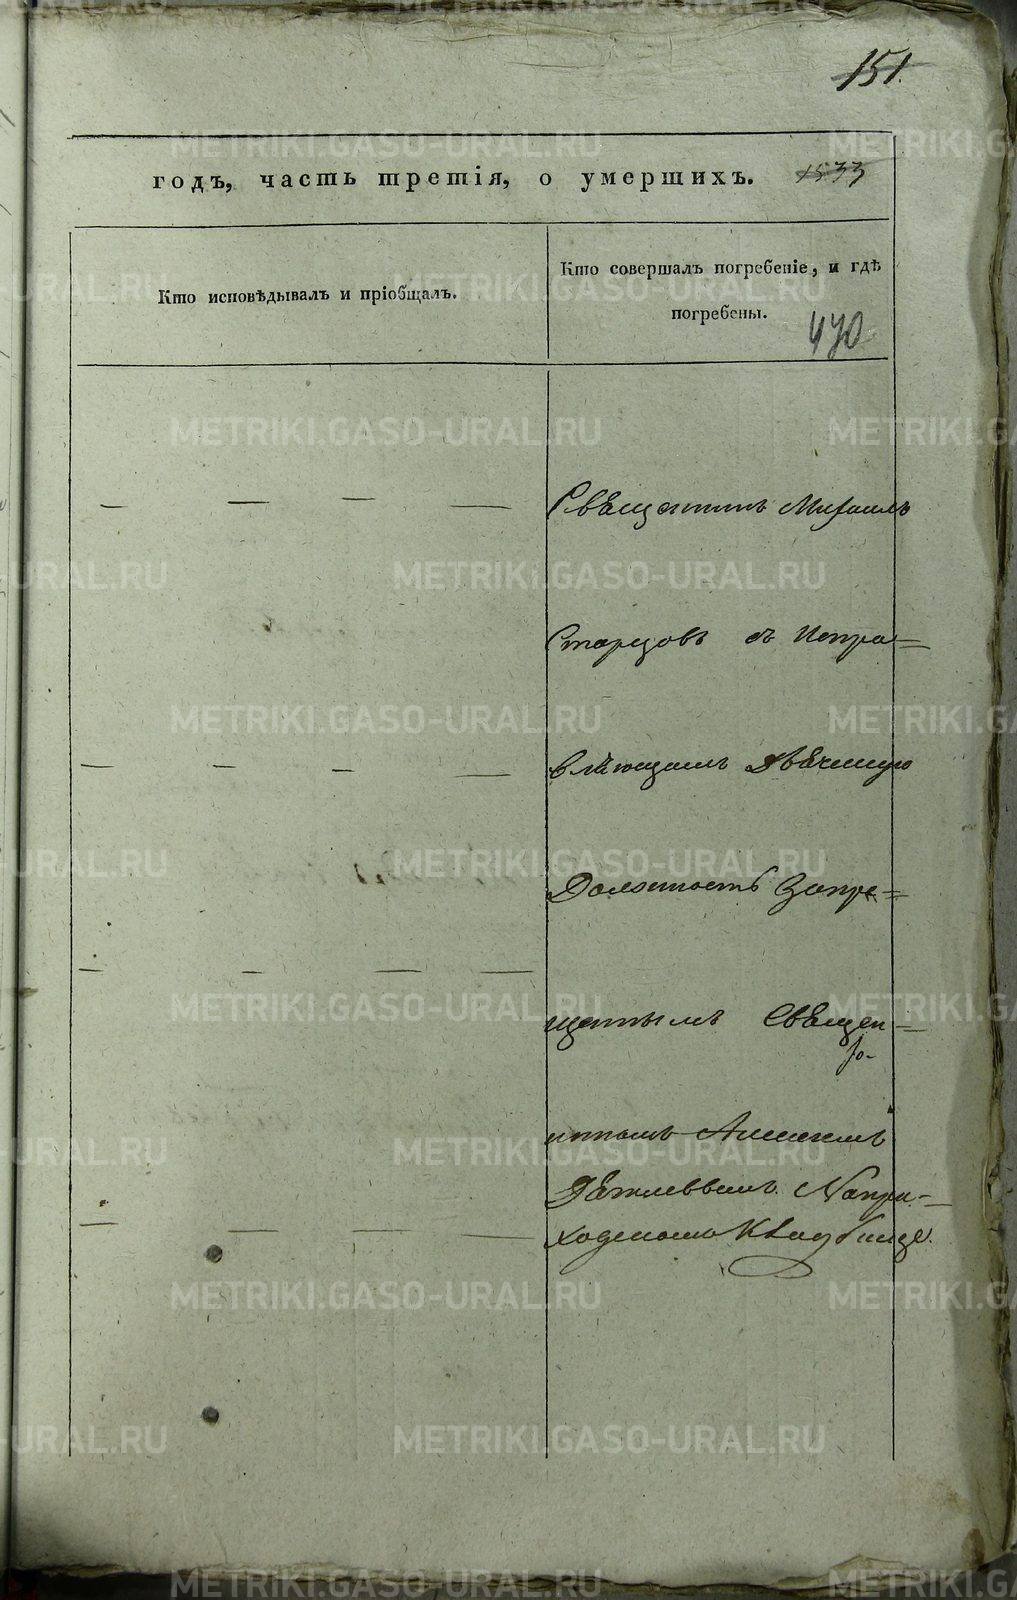 151.
годъ, часть третія, о умершихъ. 1533
Кто исповѣдывалъ и пріобщалъ.
Кто совершалъ погребеніе, и гдѣ
погребены.
470
Священникъ Михаилъ
Старцовъ съ Испра=
вляющимъ Дьяческую
Должность Запре=
щеннымъ Свящеп=
никомъ
На при=
ходскомъ Кладбище.
METRIKI.GASO-URAL.RU